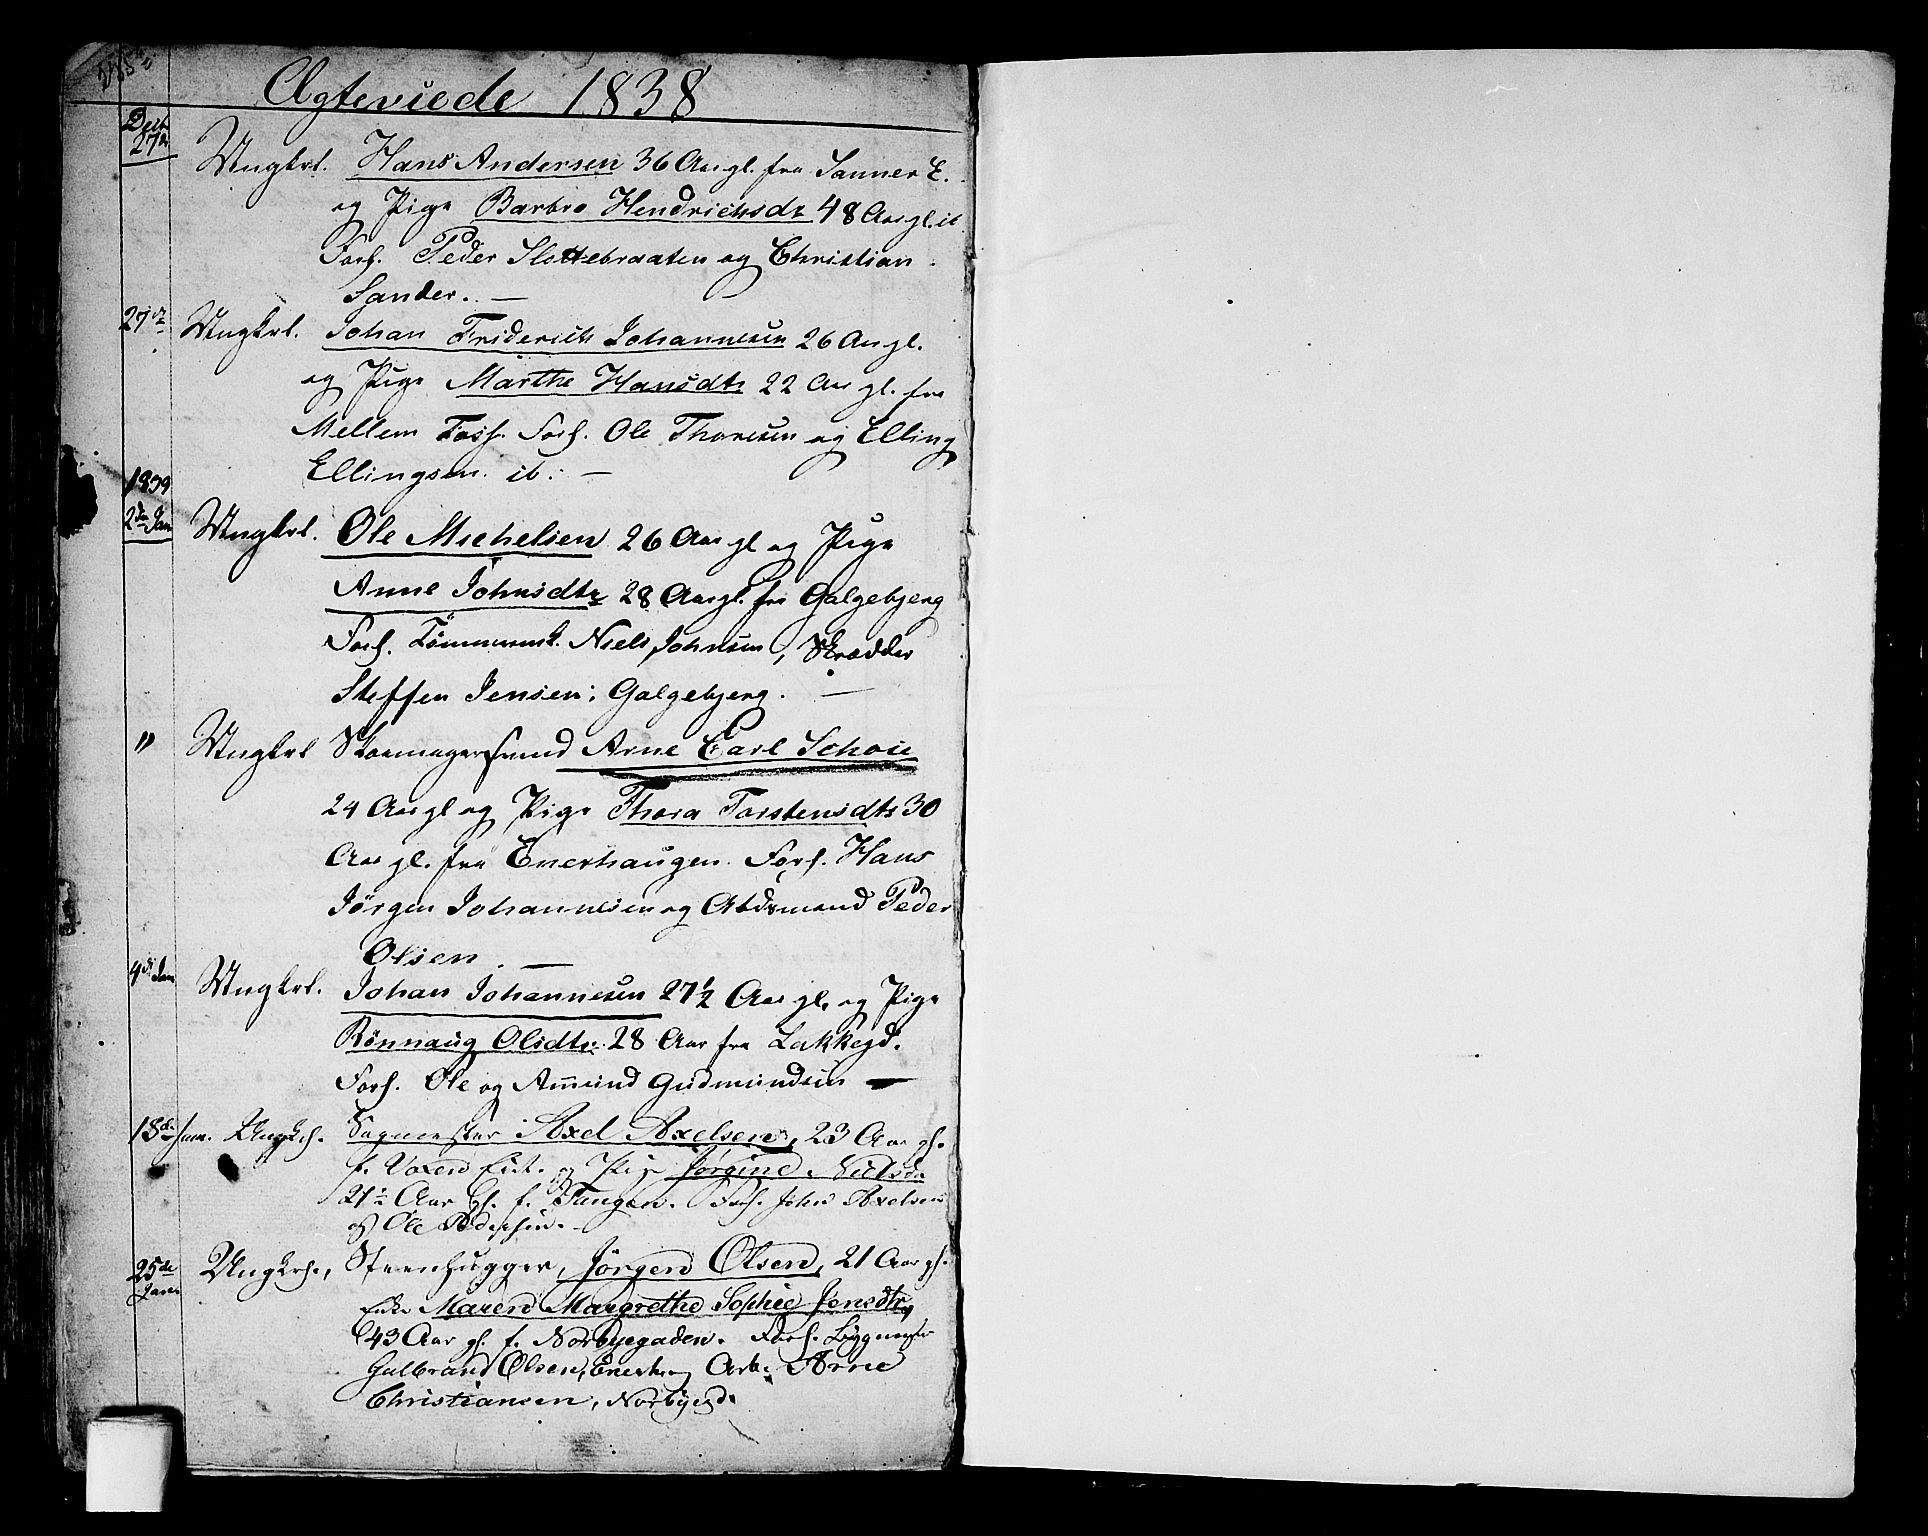 Ægteviede 1838
Decb.
27de Ungkrl. Hans Andersen 36 Aar gl. fra Sanner E.
og Pige Barbro Hendrichsdt 48 Aar gl. ib
Forl. Peder Slottebraaten og Christian
Sander. —
27de Ungkrl. Johan Friderich Johannesen 26 Aar gl.
og Pige Marthe Hansdtr 22 Aar gl. fra
Mellem Foss. Forl. Ole Thoresen og Elling
Ellingsen ib: —
1839
2den Jan Ungkrl. Ole Michelsen 26 Aar gl og Pige
Anne Johnsdtr 28 Aar gl. fra Galgebjerg
Forl. Tömmermd. Niels Johnsen, Skrædder
Steffen Jensen, Galgebjerg. —
" Ungkrl Skomagersvend Arne Carl Schou
24 Aar gl og Pige Thora Torstensdtr 30
Aar gl. fra Enerhaugen. Forl. Hans
Jörgen Johannesen og Arbdsmand Peder
Olsen. —
4de Jan Ungkrl. Johan Johannesen 27 1/2 Aar gl. og Pige
Rönnaug Olsdtr. 28 Aar fra Lakkegd.
Forl. Ole og Amund Gudmundsen —
18de Jan. Ungkrl. Sagmester Axel Axelsen, 23 Aar gl.
f. Vaxen og Pige Jörgine Nielsdr
21 1/2 Aar gl. f. Tangen. Forl. John Axelsen
og Ole Pedersen.
25de Jan. Ungkrl., Steenhugger, Jörgen Olsen, 21 Aar gl.
Enke Maren Margrethe Sophie Jensdtr,
43 Aar gl. f. Norbyegaden. Forl. Byggmester
Gulbrand Olsen, Enerh. og Arb. Arne
Christiansen, Norbyegd.